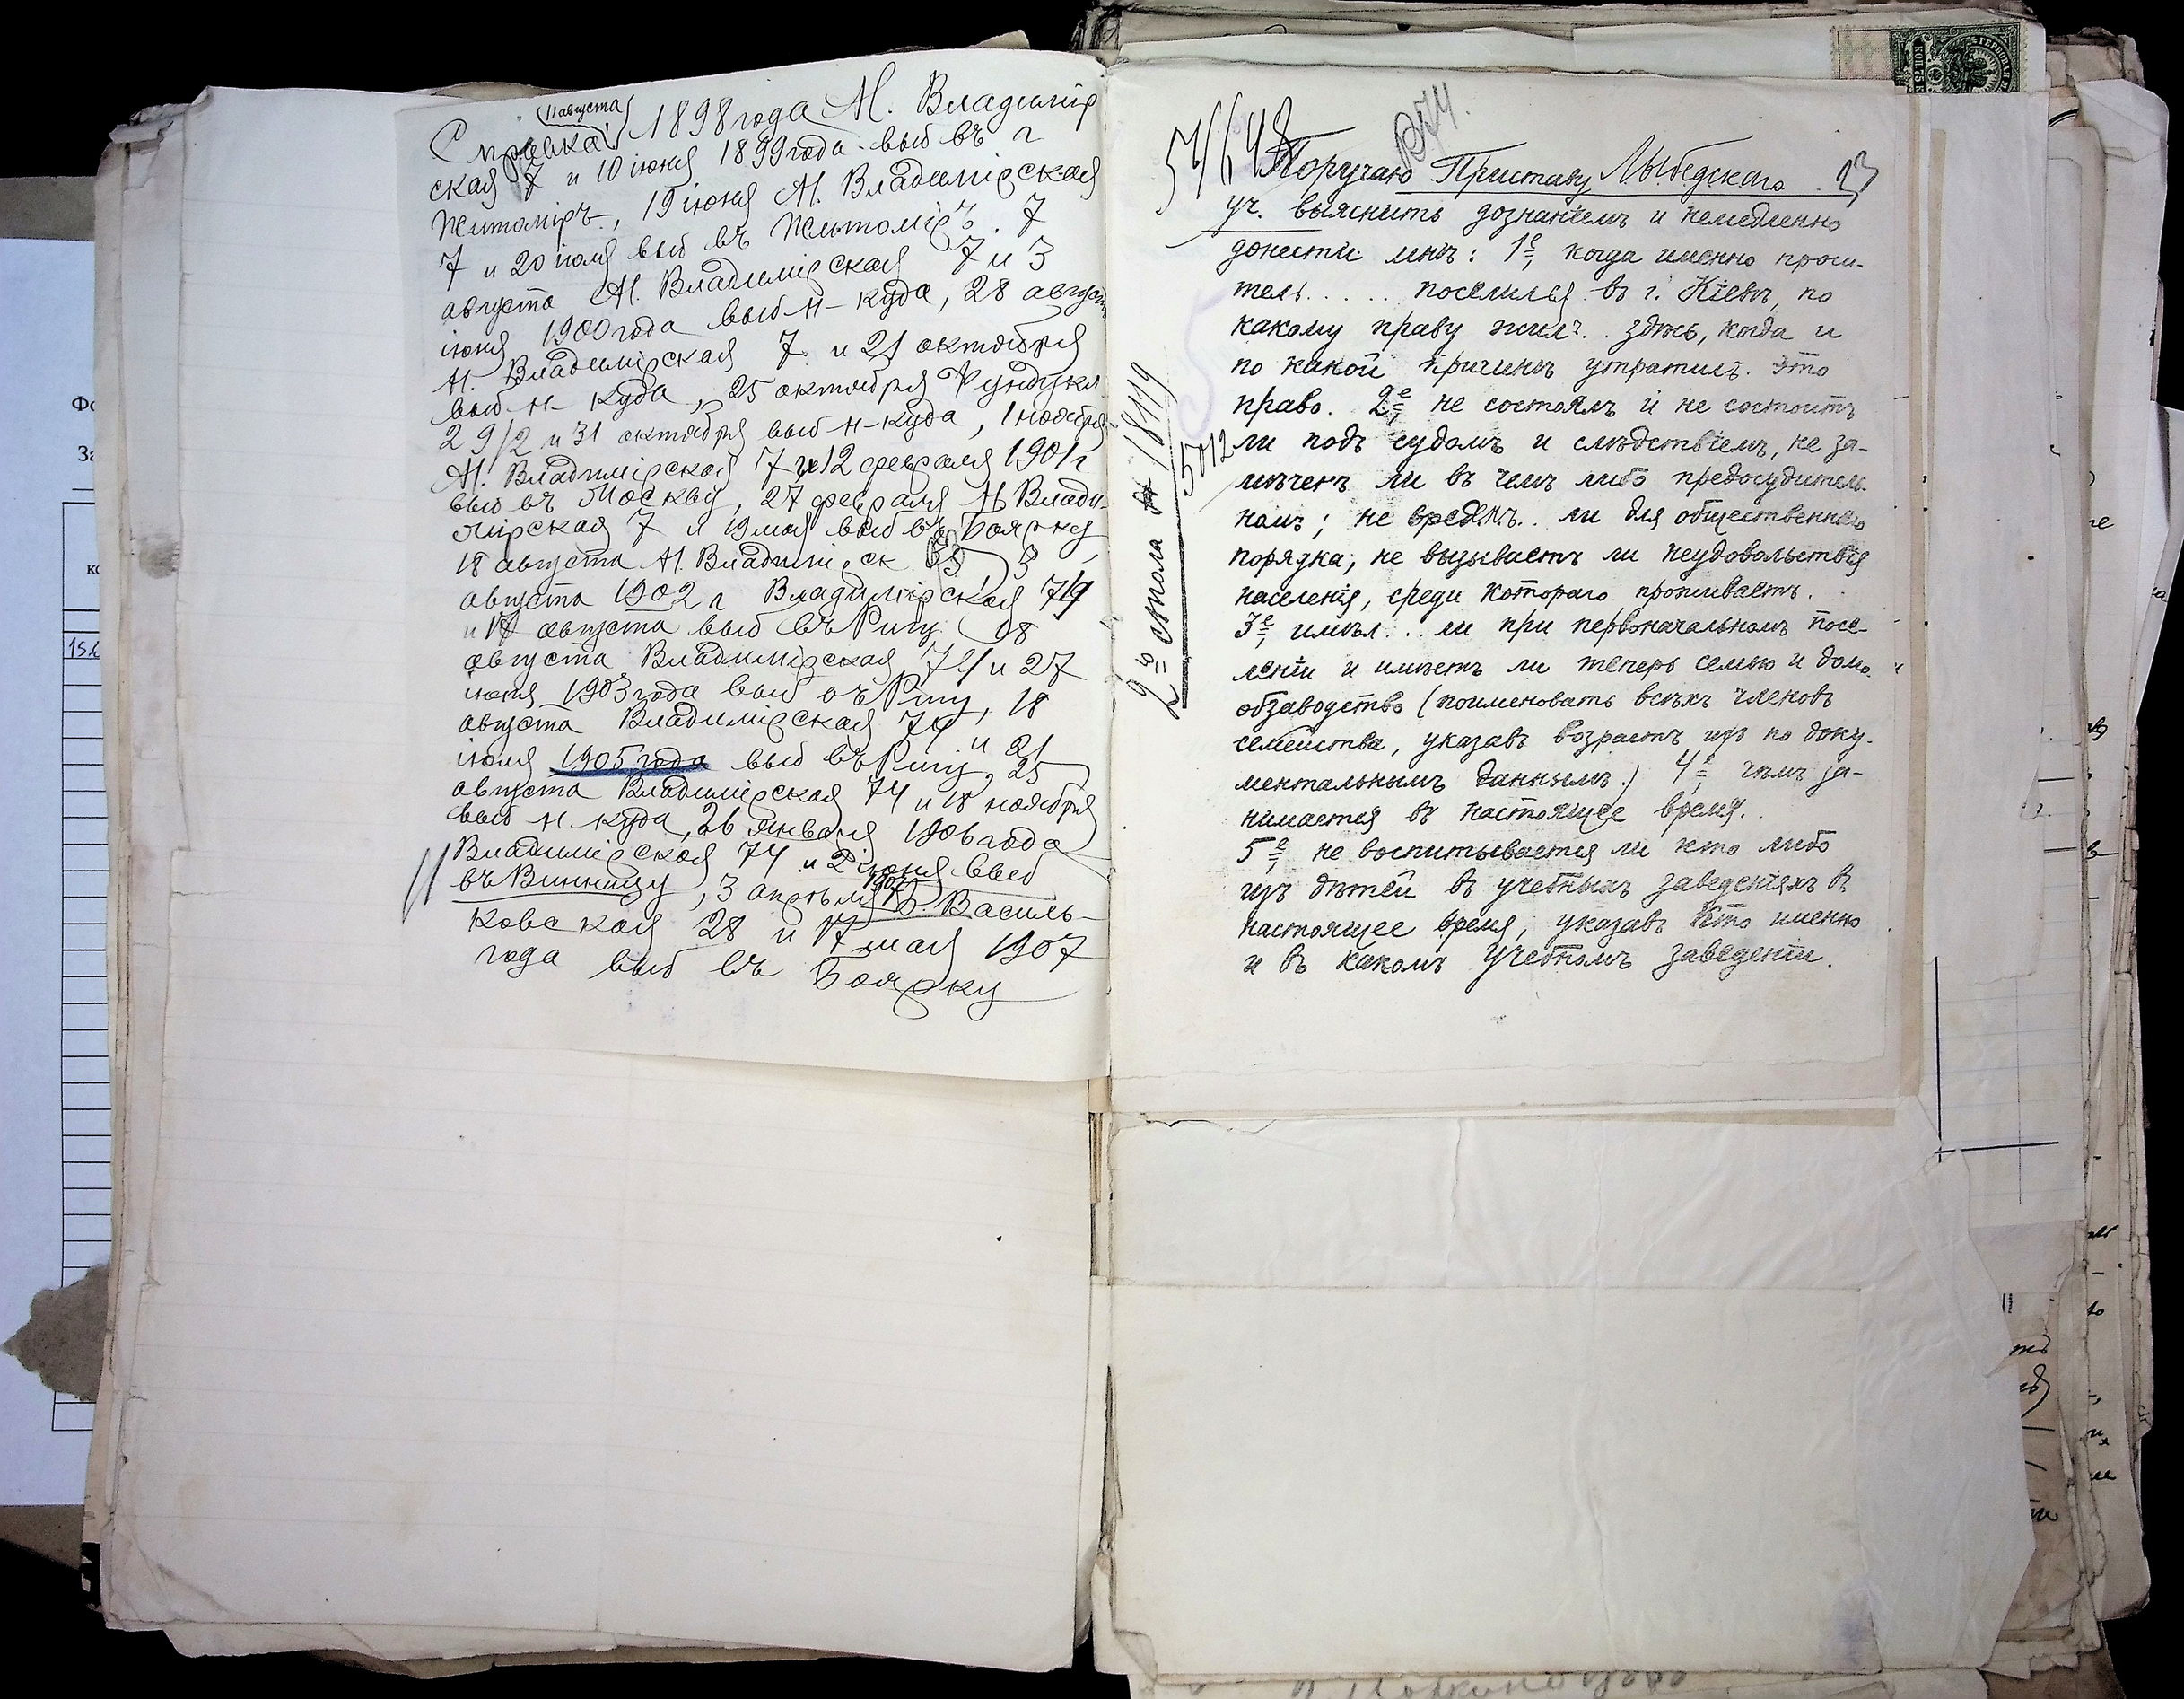 11 августа
Справка 1898 года М. Владимір
ская 7 и 10 іюня 1899 года выб въ г
Житоміръ, 19 іюня М. Владимірская
7 и 20 іюля выб въ Житоміръ. 7
августа М. Владимірская 7 и 3
іюня 1900 года выб н-куда, 28 август
М. Владимірская 7 и 21 октября
выб н-куда, 25 октября Фундукл
29/2 и 31 октября выб н-куда, 1 ноября
М. Владимірской 7 и 12 февраля 1901 г
выб въ Москву, 27 февраля М Влади-
мірская 7 и 19 мая выб въ Боярку
18 августа М. Владимірск 3
августа 1902 г Владимірская 79
и 17 августа выб въ Ригу 08
августа Владимірская 74 и 27
іюня 1903 года выб въ Ригу, 18
августа Владимірская 74 и 21
іюля 1905 года выб въ Ригу, 25
августа Владимірская 74 и 18 ноября
выб н-куда, 26 января 1906 года
Владимірская 74 и 2 іюня выб
въ Винницу, 3 апрѣля 1907 Б. Василь-
ковская 28 и 17 мая 1907
года выб въ Боярку
23
Поручаю Приставу Лыбедскаго
уч. выяснить дознаніемъ и немедленно
донести мнѣ: 1е, когда именно проси-
тель..... поселился въ г. Кіевѣ, по
какому праву жилъ.. здѣсь, когда и
по какой причинѣ утратилъ. это
право. 2е, не состоялъ и не состоитъ
ли подъ судомъ и слѣдствіемъ, не за-
мѣченъ ли въ чемъ либо предосудитель-
номъ; не вреденъ.. ли для общественнаго
порядка, не вызываетъ ли неудовольствія
населенія, среди котораго проживаетъ.
3е, имѣл... ли при первоначальномъ посе-
леніи и имѣетъ ли теперь семью и домо-
обзаводство (поименовать всѣхъ членовъ
семейства, указавъ возрастъ ихъ по доку-
ментальнымъ даннымъ.) 4е, чѣмъ за-
нимается въ настоящее время..
5е, не воспитывается ли кто либо
изъ дѣтей въ учебныхъ заведеніяхъ въ
настоящее время, указавъ кто именно
и въ какомъ учебномъ заведеніи.
2го стола № 18119
5012